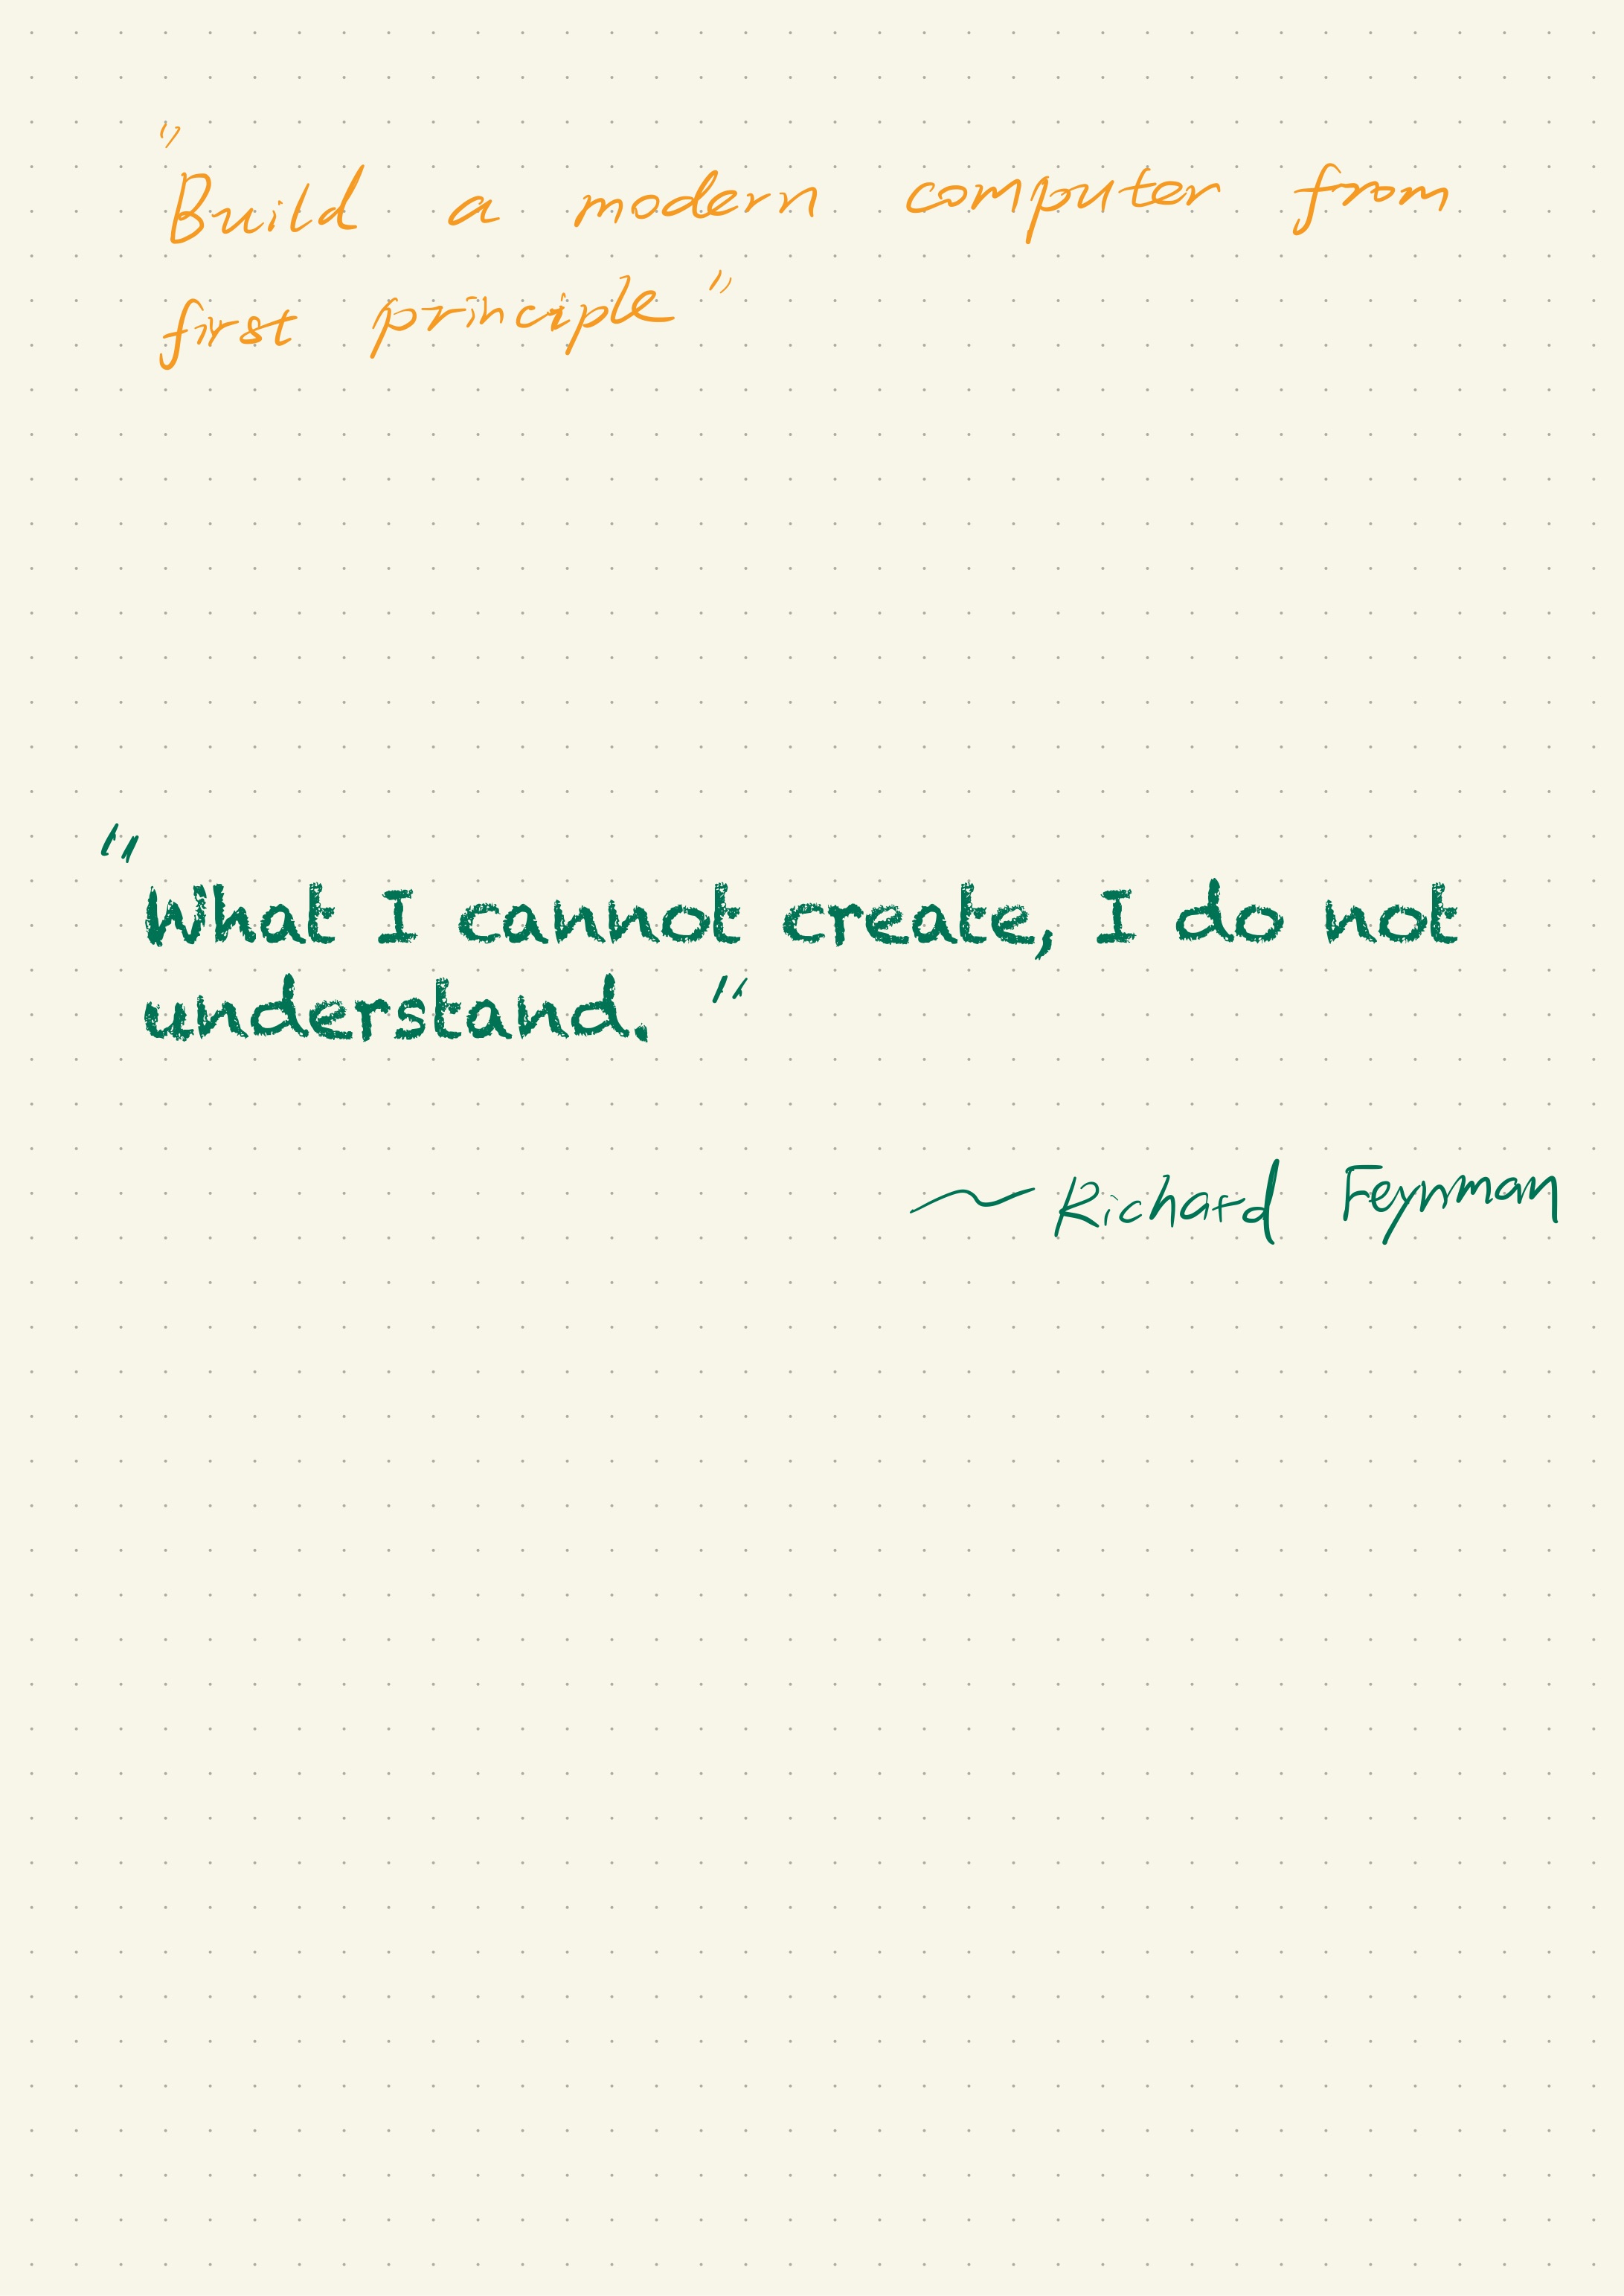 "Build a modern computer from
first principle"
"What I cannot create, I do not
understand."
~ Richard Feynman